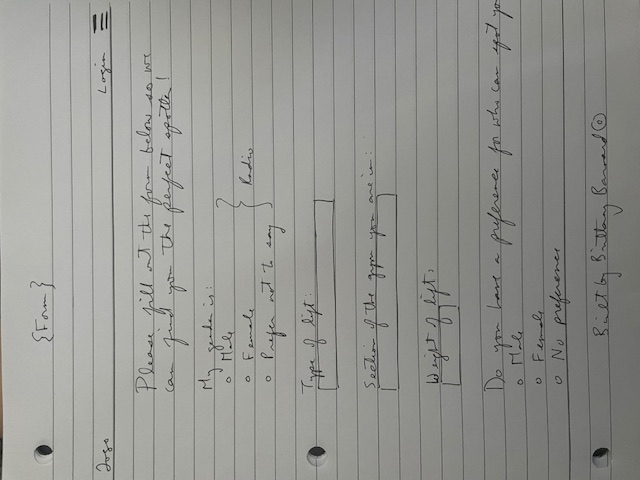 {Form}
Logo Login
Please fill out the form below so we
can find you the perfect spotter!
My gender is:
Male
Female
Prefer not to say
Radio
Type of lift:
Section of the gym you are in:
Weight of lift:
Do you have a preference for who can spot yo
Male
Female
No preference
Built by Brittany Barnard ©